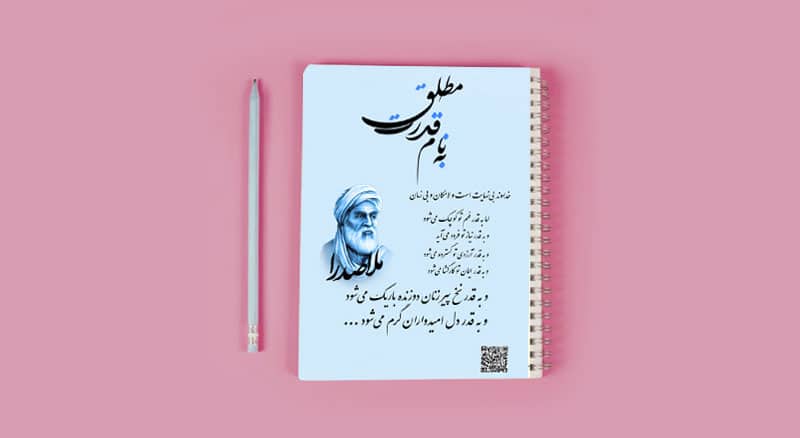 به نام قدرت مطلق
خداوند بی‌نهایت است و لامکان و بی زمان
اما به قدر فهم تو کوچک می‌شود
و به قدر نیاز تو فرود می‌آید
و به قدر آرزوی تو گسترده می‌شود
و به قدر ایمان تو کارگشا می‌شود
ملاصدرا
و به قدر نخ پیر زنان دوزنده باریک می‌شود
و به قدر دل امیدواران گرم می‌شود ...